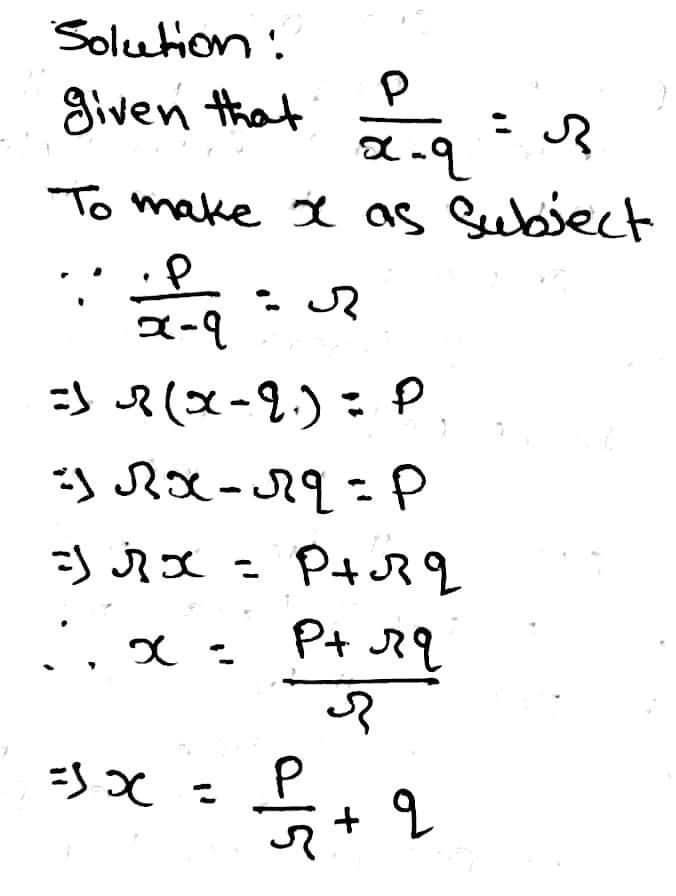 Solution:
given that p/(x-q) = r
To make x as Subject
∵ p/(x-q) = r
⇒ r(x-q) = p
⇒ rx - rq = p
⇒ rx = p + rq
∴ x = (p + rq)/r
⇒ x = p/r + q